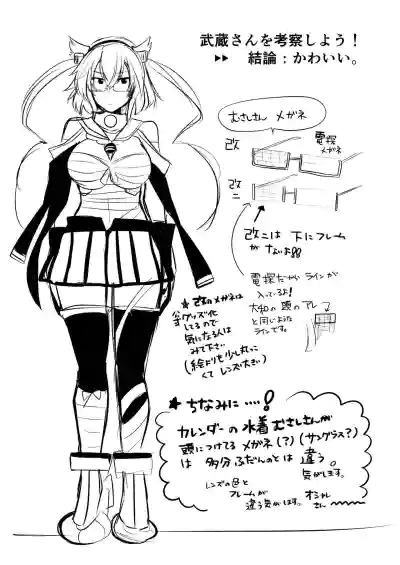 武蔵さんを考察しよう！
▶▶ 結論：かわいい。
むさしさん メガネ
改
電探
メガネ
改二
改二は 下にフレーム
がないよ!!
電探だから ラインが
入ってるよ!
大和の頭のアレ
と同じような
ラインです。
★改のメガネは
公式グッズ化
してるので
気になる人は
みて下さい
(絵よりも少し丸っこ
くて レンズ大きい)
★ちなみに…!
カレンダーの 水着むさしさんが
頭につけてる メガネ(?)(サングラス?)
は 多分 ふだんのとは 違う
気がします。
レンズの色と
フレームが
違う気がします。
オシャレ
さん